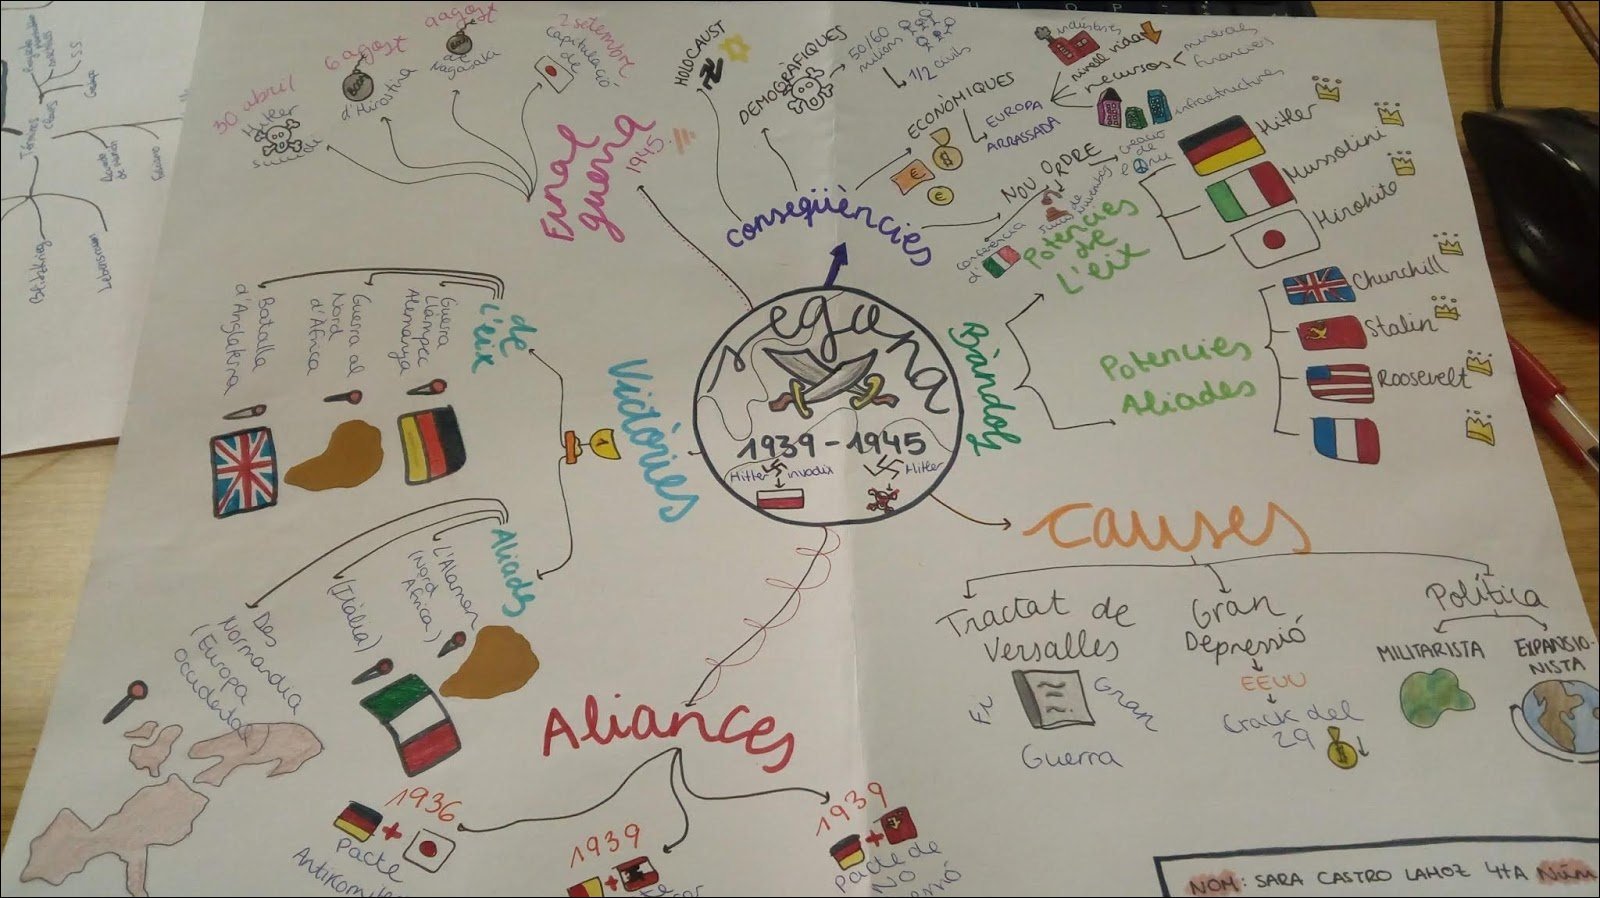 Segona
1939-1945
Hitler invadix
Hitler
Final
guerra
1945
30 abril
Hitler
6 agost
d'Hiroshima
9 agost
de
Nagasaki
2 setembre
Capitulació
de
Conseqüències
HOLOCAUST
DEMOGRÀFIQUES
50/60
milions
1/2 civils
ECONÒMIQUES
EUROPA
ARRASSADA
indústries
nivell vida
recursos
minerales
financers
infraestructures
NOU ORDRE
Conferència
d'
Bàndols
Potències
de
L'eix
Hitler
Mussolini
Hirohito
Potències
Aliades
Churchill
Stalin
Roosevelt
Causes
Tractat de
Versalles
Fi
Gran
Guerra
Gran
Depressió
EEUU
Crack del
29
Política
MILITARISTA
EXPANSIO-
NISTA
Aliances
1936
Pacte
1939
1939
Pacte de
NO
Victòries
de
L'eix
Guerra
Llampec
Alemanya
Guerra al
Nord
d'Àfrica
Batalla
d'Anglaterra
Aliades
L'Alamen
(Nord
Àfrica)
(Itàlia)
Des
Normandia
(Europa
occidental
NOM: SARA CASTRO LAHOZ 4tA Núm
Blitzkrieg
Lebensraum
Términs
claus
S.S.